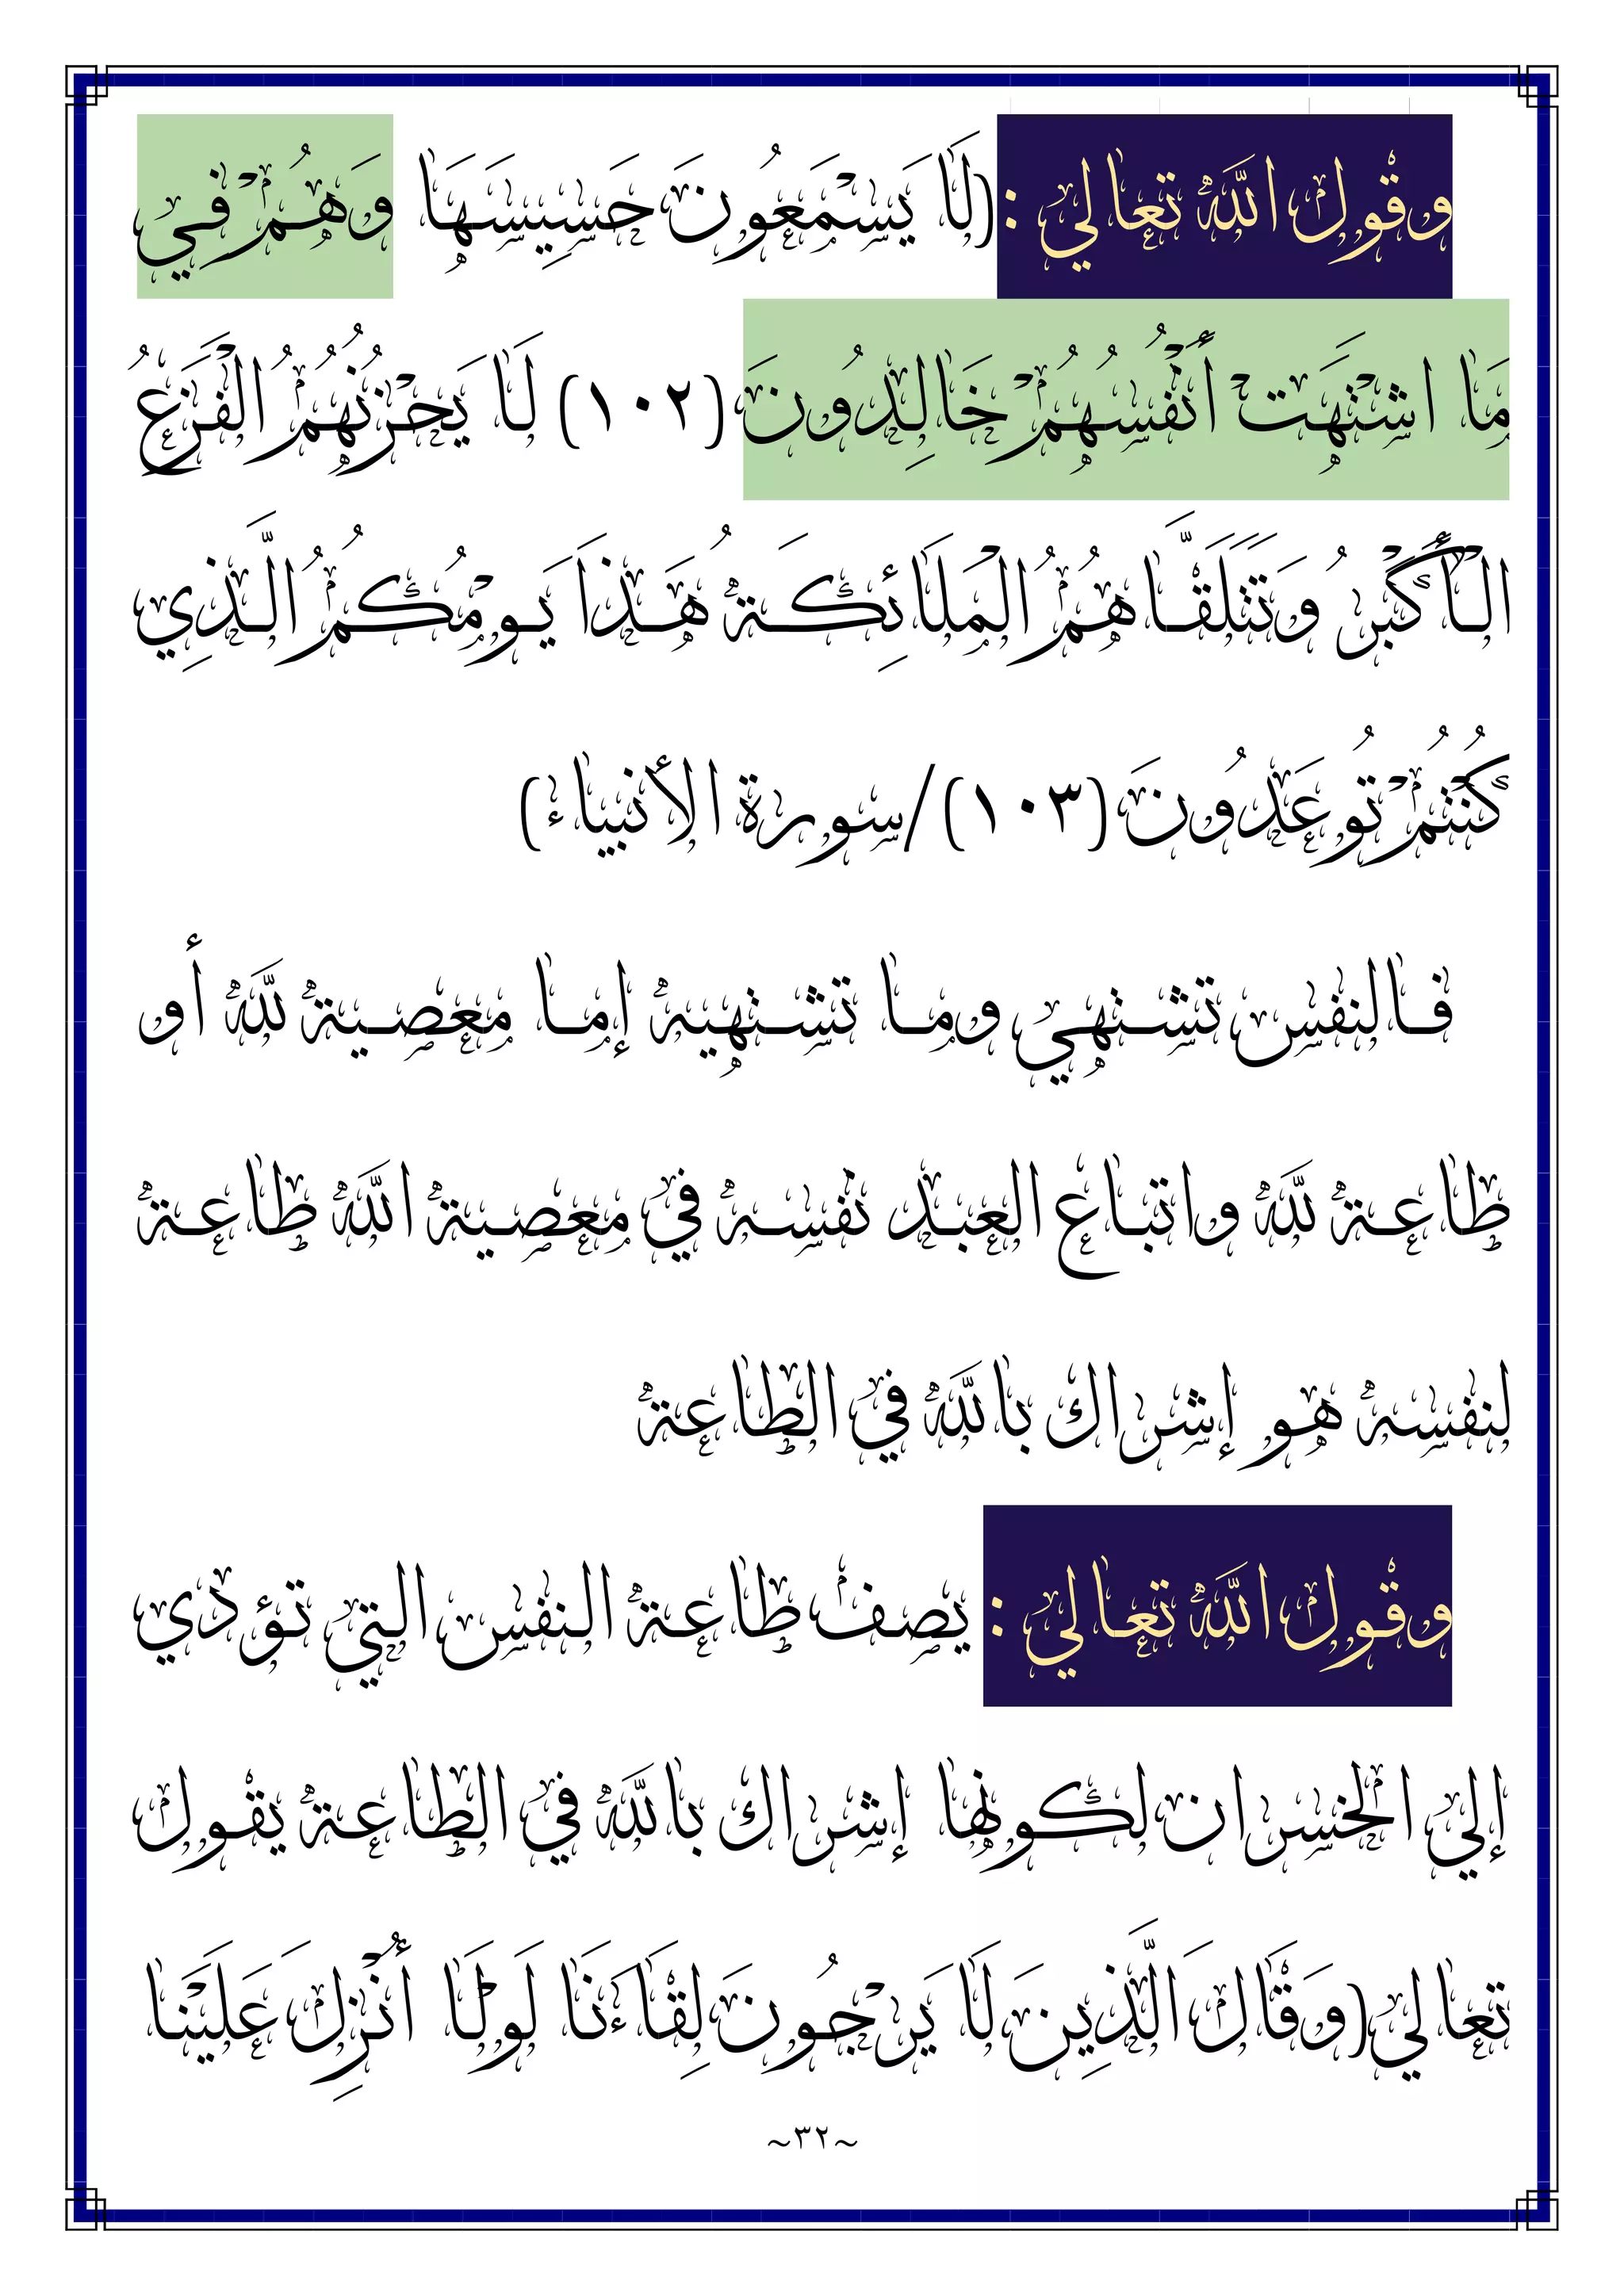 وقول الله تعالي : (لَا يَسْمَعُونَ حَسِيسَهَا وَهُمْ فِي
مَا اشْتَهَتْ أَنْفُسُهُمْ خَالِدُونَ (١٠٢) لَا يَحْزُنُهُمُ الْفَزَعُ
الْأَكْبَرُ وَتَتَلَقَّاهُمُ الْمَلَائِكَةُ هَذَا يَوْمُكُمُ الَّذِي
كُنْتُمْ تُوعَدُونَ (١٠٣) /سورة الأنبياء)
فالنفس تشتهي وما تشتهيه إما معصية لله أو
طاعة لله واتباع العبد نفسه في معصية الله طاعة
لنفسه هو إشراك بالله في الطاعة
وقول الله تعالي : يصف طاعة النفس التي تؤدي
إلي الخسران لكونها إشراك بالله في الطاعة يقول
تعالي(وَقَالَ الَّذِينَ لَا يَرْجُونَ لِقَاءَنَا لَوْلَا أُنْزِلَ عَلَيْنَا
~٣٢~